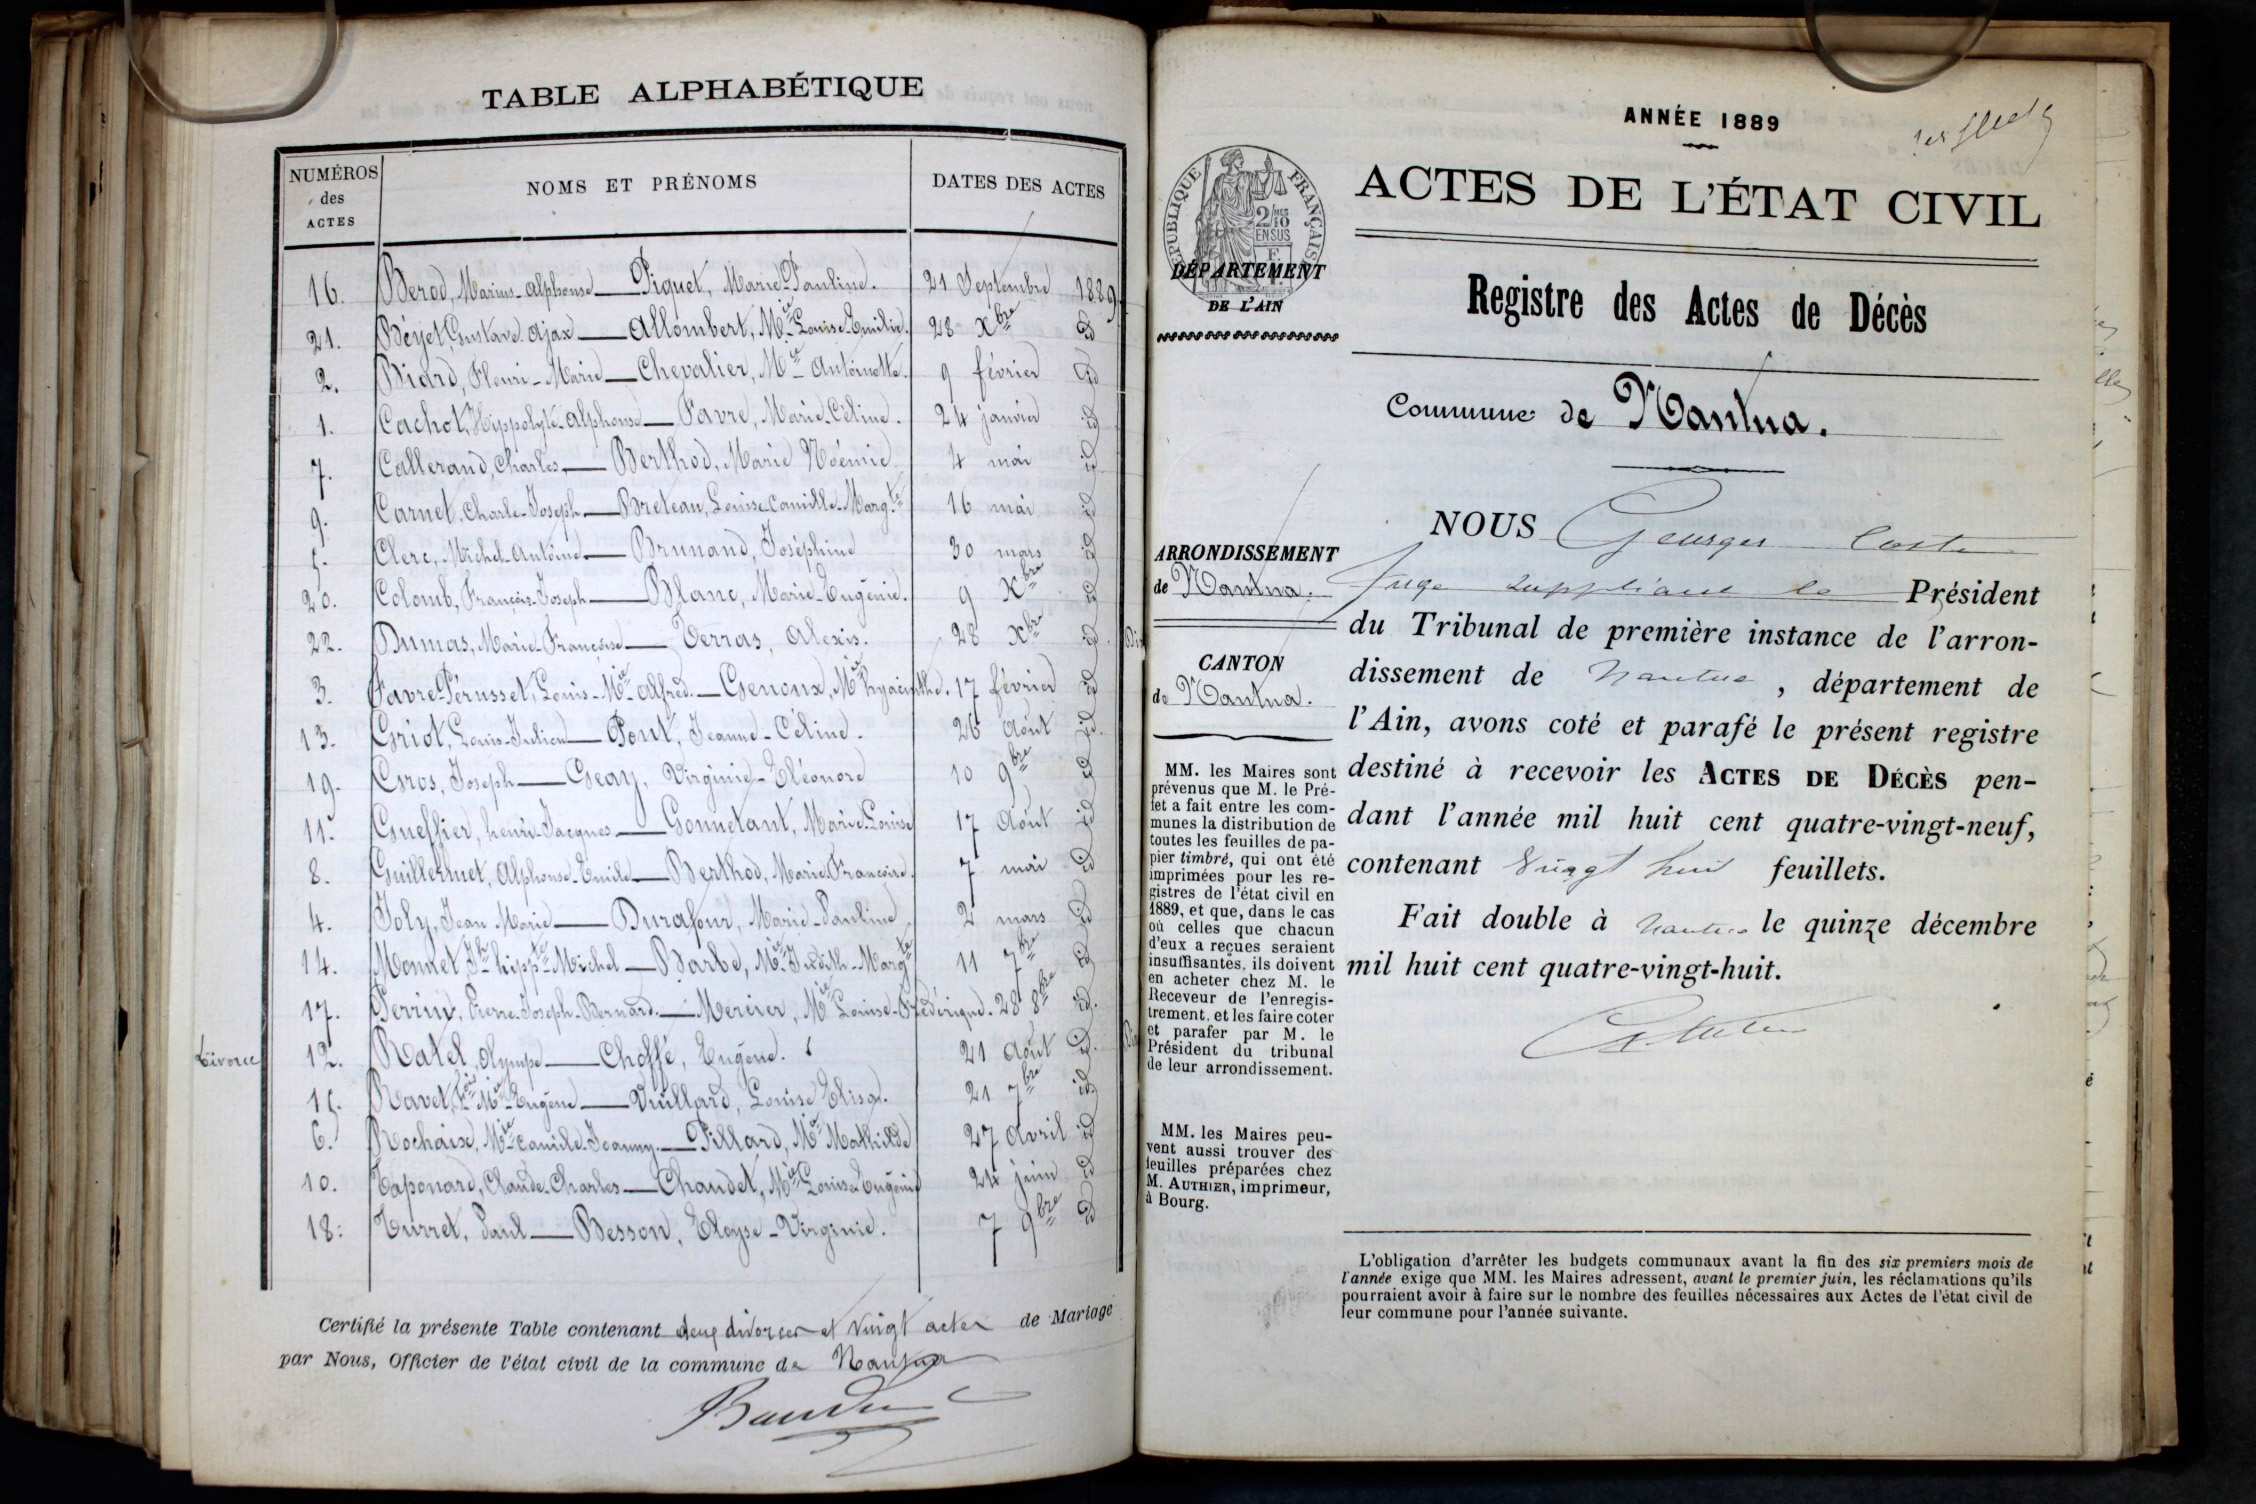 TABLE ALPHABÉTIQUE
NUMÉROS des ACTES
NOMS ET PRÉNOMS
DATES DES ACTES
16. Berod, Marius-Alphonse — Piquet, Marie-Pauline. 21 Septembre 1889
21. Béyet, Gustave Ajax — Allombert, Mie Louise-Emilie. 28 Xbre id
2. Biard, Fleuri-Marie — Chevalier, Mie Antoinette. 9 février id
1. Cachot, Hippolyte-Alphonse — Favre, Marie-Céline. 24 janvier id
7. Callerand, Charles — Berthod, Marie Noémie 4 mai id
9. Carnet, Charle-Joseph — Breteau, Louise-Camille-Margte 16 mai id
5. Clerc, Michel-Antoine — Brunand, Joséphine 30 mars id
20. Colomb, François-Joseph — Blanc, Marie-Eugénie. 9 Xbre id
22. Dumas, Marie-Françoise — Verras, Alexis. 28 Xbre id
3. Favre-Pérusset, Louis-Mie Alfred. — Genoux, Mie hyacinthe. 17 février id
13. Griot, Louis-Julien — Pont, Jeanne-Céline. 26 Août id
19. Gros, Joseph — Geay, Virginie-Eléonore 10 9bre id
11. Gueffier, henri-Jacques — Gonnetant, Marie-Louise 17 Août id
8. Guillermet, Alphonse-Emile — Berthod, Marie Françoise. 7 mai id
4. Joly, Jean Marie — Durafour, Marie-Pauline 2 mars id
14. Monnet, Jh hippte Michel — Barbe, Mie Judith-Margte 11 7bre id
17. Perrin, Pierre-Joseph-Bernard. — Mercier, Mie Louise-Frédérique. 28 8bre id.
Divorce 12. Ratel, Olympe — Choffé, Eugène. 21 Août id.
15. Ravet, Fois Mie Eugène — Vuillard, Louise Elisa. 21 7bre id
6. Rochaix, Mie Camille-Jeanny. — Pillard, Mie Mathilde 27 Avril id
10. Taponard, Claude-Charles — Chaudet, Mie Louise-Eugénie 24 juin id
18: Turret, Paul — Besson, Eloyse-Virginie. 7 9bre id
Certifié la présente Table contenant deux divorces et vingt actes de Mariage
par Nous, Officier de l'état civil de la commune de Nantua
ANNÉE 1889
ACTES DE L'ÉTAT CIVIL
RÉPUBLIQUE FRANÇAISE
2/10 EN SUS
DÉPARTEMENT
DE L'AIN
Registre des Actes de Décès
Commune de Nantua.
ARRONDISSEMENT
de Nantua.
CANTON
de Nantua.
MM. les Maires sont
prévenus que M. le Pré-
fet a fait entre les com-
munes la distribution de
toutes les feuilles de pa-
pier timbré, qui ont été
imprimées pour les re-
gistres de l'état civil en
1889, et que, dans le cas
où celles que chacun
d'eux a reçues seraient
insuffisantes, ils doivent
en acheter chez M. le
Receveur de l'enregis-
trement, et les faire coter
et parafer par M. le
Président du tribunal
de leur arrondissement.
MM. les Maires peu-
vent aussi trouver des
feuilles préparées chez
M. AUTHIER, imprimeur,
à Bourg.
NOUS Georges Coste
Juge suppléant le Président
du Tribunal de première instance de l'arron-
dissement de Nantua, département de
l'Ain, avons coté et parafé le présent registre
destiné à recevoir les ACTES DE DÉCÈS pen-
dant l'année mil huit cent quatre-vingt-neuf,
contenant vingt huit feuillets.
Fait double à Nantua le quinze décembre
mil huit cent quatre-vingt-huit.
L'obligation d'arrêter les budgets communaux avant la fin des six premiers mois de
l'année exige que MM. les Maires adressent, avant le premier juin, les réclamations qu'ils
pourraient avoir à faire sur le nombre des feuilles nécessaires aux Actes de l'état civil de
leur commune pour l'année suivante.